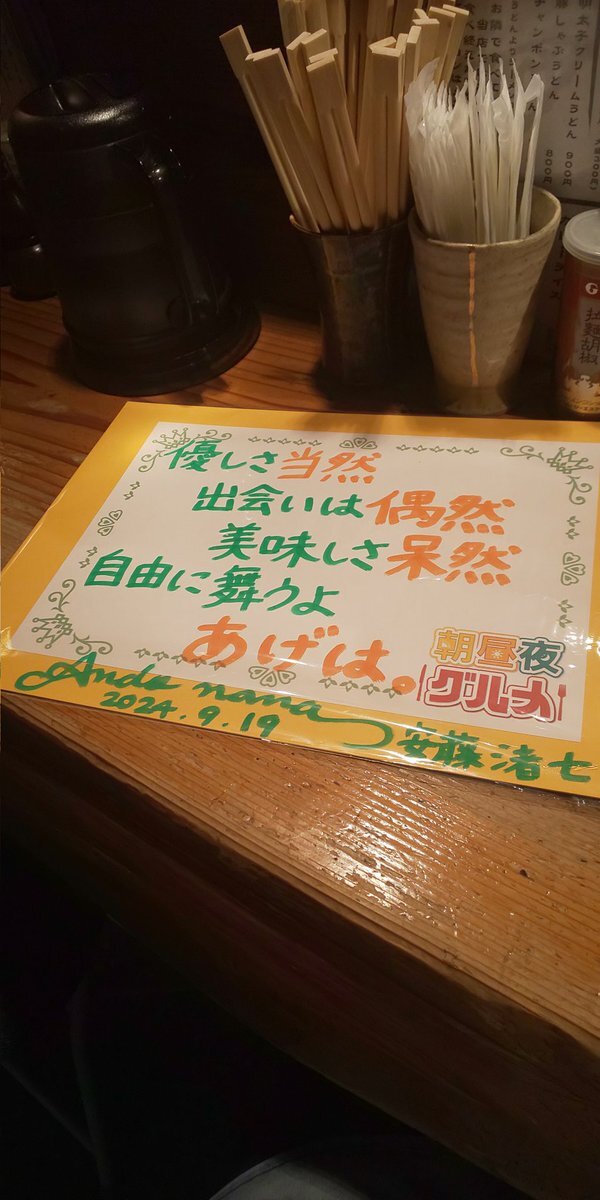 明太子クリームうどん 900円
豚しゃぶうどん
チャンポン 800円
拉麺胡椒
優しさ当然
出会いは偶然
美味しさ呆然
自由に舞うよ
あげは。
朝昼夜
グルメ
Ando nana
2024.9.19
安藤渚七